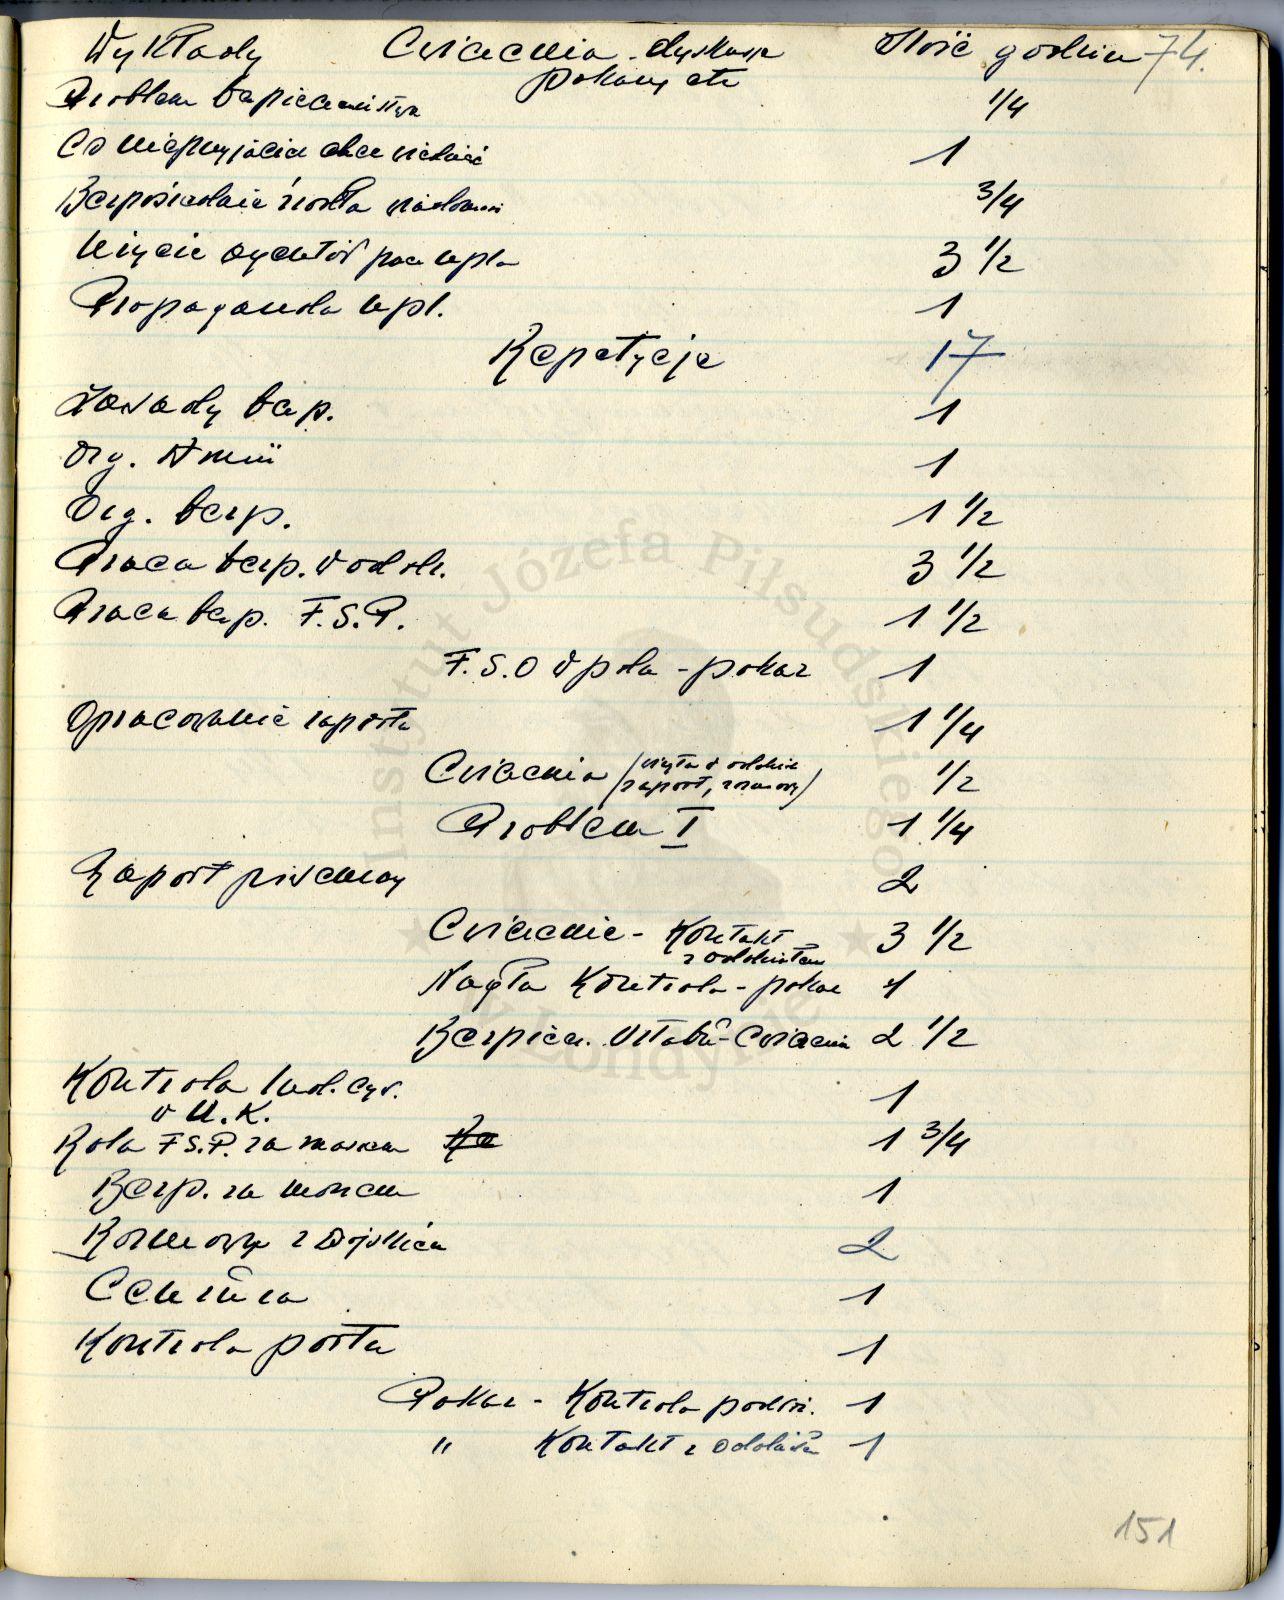 Wykłady Ćwiczenia - dyskusje Ilość godzin 74.
pokazy etc
Problem bezpieczeństwa 1/4
Co nieprzyjaciel chce wiedzieć 1
Bezpośrednie źródła wiadomości 3/4
Użycie agentów przez npla 3 1/2
Propaganda npl. 1
Repetycje 17
Zasady bezp. 1
Org. Armii 1
Org. bezp. 1 1/2
Praca bezp. w oddz. 3 1/2
Praca bezp. F.S.P. 1 1/2
F.S.O w polu - pokaz 1
Opracowanie raportu 1 1/4
Ćwiczenia (wizyta w oddziale
raport, rozmowy) 1/2
Problem I 1 1/4
Raport pisemny 2
Ćwiczenie - Kontakt 3 1/2
z oddziałem
Nagła Kontrola - pokaz 1
Bezpiecz. Sztabu - Ćwiczenia 2 1/2
Kontrola lud. cyw. 1
w U.K.
Rola F.S.P. za morzem 1 3/4
Bezp. za morzem 1
Rozmowy z wojskiem 2
Cenzura 1
Kontrola portu 1
Pokaz - Kontrola podróż. 1
" Kontakt z oddziałem 1
151
Instytut Józefa Piłsudskiego
w Londynie